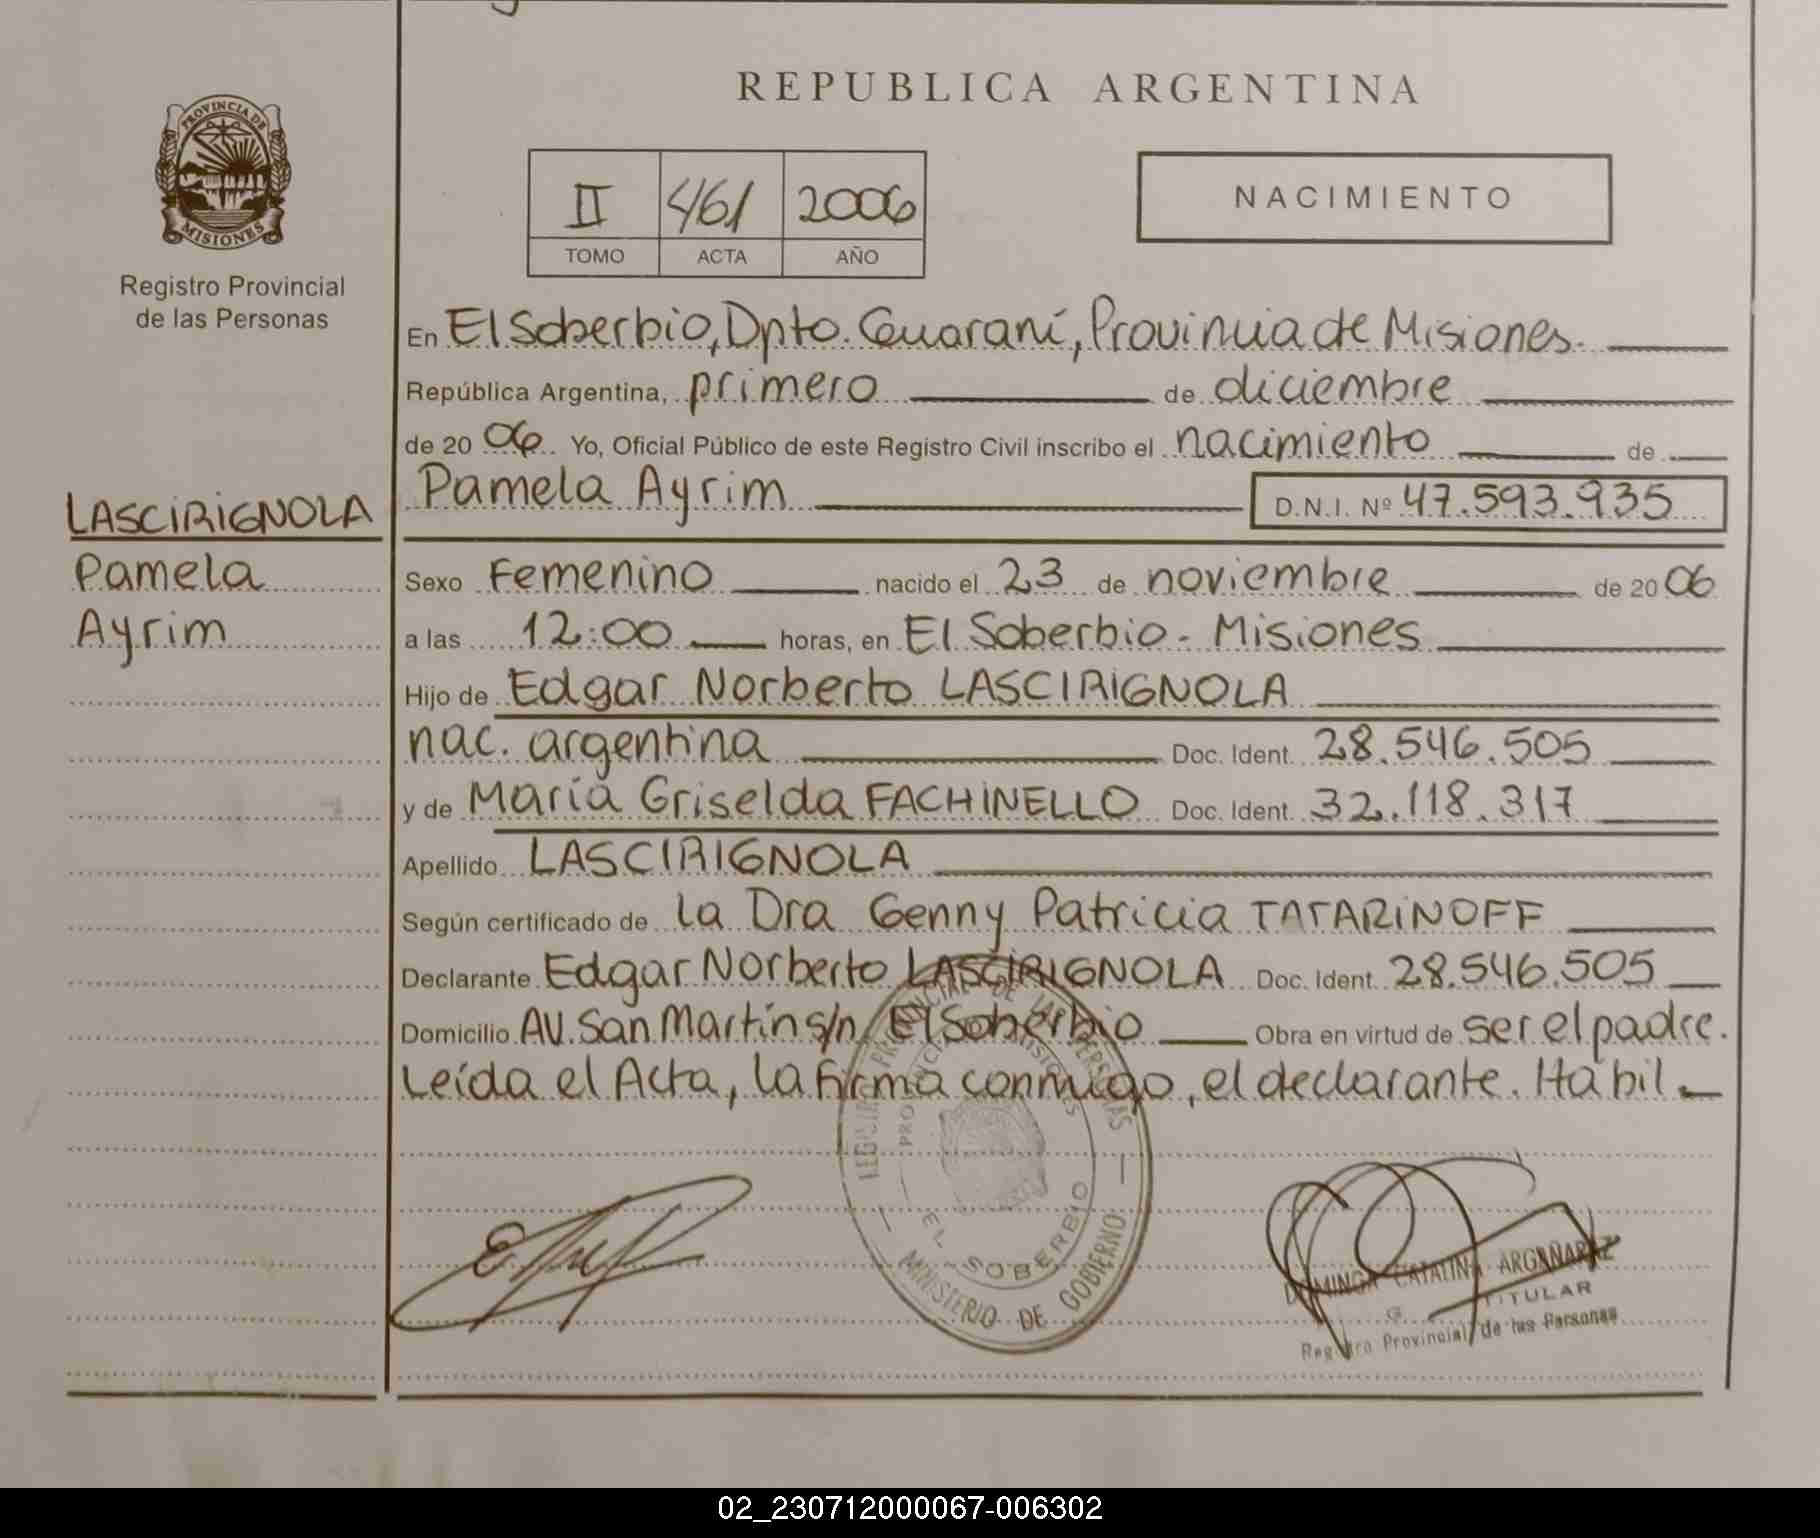 REPUBLICA ARGENTINA
PROVINCIA DE
MISIONES
Registro Provincial
de las Personas
II 461 2006
TOMO ACTA AÑO
NACIMIENTO
En El Soberbio, Dpto. Guaraní, Provincia de Misiones.
República Argentina, primero de diciembre
de 2006 Yo, Oficial Público de este Registro Civil inscribo el nacimiento de
LASCIRIGNOLA Pamela Ayrim D.N.I. Nº 47.593.935
Pamela Sexo Femenino nacido el 23 de noviembre de 2006
Ayrim a las 12:00 horas, en El Soberbio - Misiones
Hijo de Edgar Norberto LASCIRIGNOLA
nac. argentina Doc. Ident. 28.546.505
y de María Griselda FACHINELLO Doc. Ident. 32.118.317
Apellido LASCIRIGNOLA
Según certificado de la Dra Genny Patricia TATARINOFF
Declarante Edgar Norberto LASCIRIGNOLA Doc. Ident. 28.546.505
Domicilio AV. San Martín s/n El Soberbio Obra en virtud de ser el padre.
Leída el Acta, la firma conmigo, el declarante. Habil
PROVINCIAL DE LAS PERSONAS
MISIONES
EL SOBERBIO
MINISTERIO DE GOBIERNO
DOMINGA CATALINA ARGAÑARAZ
TITULAR
Registro Provincial de las Personas
02_230712000067-006302